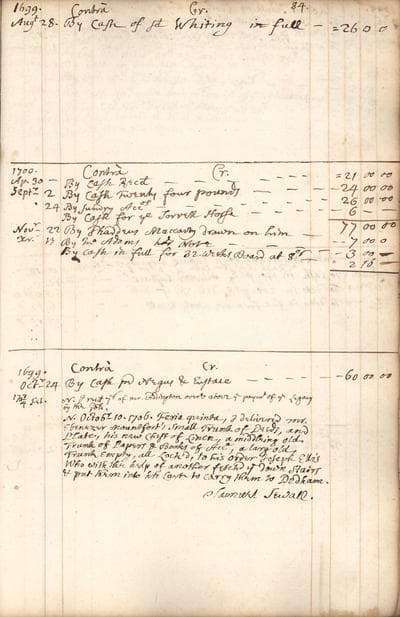 1699. Contrà Cr. 84.
Augt 28. By Cash of sd Whiting in full = 26 0 0
1700. Contrà Cr.
Ap. 30 By Cash Recd = 21 00 00
Septr 2 By Cash Twenty four pounds 24 00 00
24 By Sundry Accts 26 00 00
By Cash for ye Sorrell Horse 6
77 00 00
Novr 22 By Thaddeus Maccarty drawn on him 7 0 0
Xr. 17 By Mr Adams his Note 3 00
By Cash in full for 32. weeks Board at 8s 2 16
1699. Contrà Cr.
Octr 24 By Cash pd Negus & Estate 60 00 00
of mr. Addington above ye paymt of ye Legacy
by the
N. Octobr 10. 1706. Feria quinta, I delivered mr.
Ebenezer Mountfort's Small Trunk of Deeds, and
Plate, his new Chest of Linen, a middling old
Trunk of Papers & Books of Acc, a large old
Trunk Empty, all Lock'd, to his order Joseph Ellis
Who with the help of another fetch'd ym down Stairs
& put them into his Cart to carry them to Dedham.
Samuel Sewall.